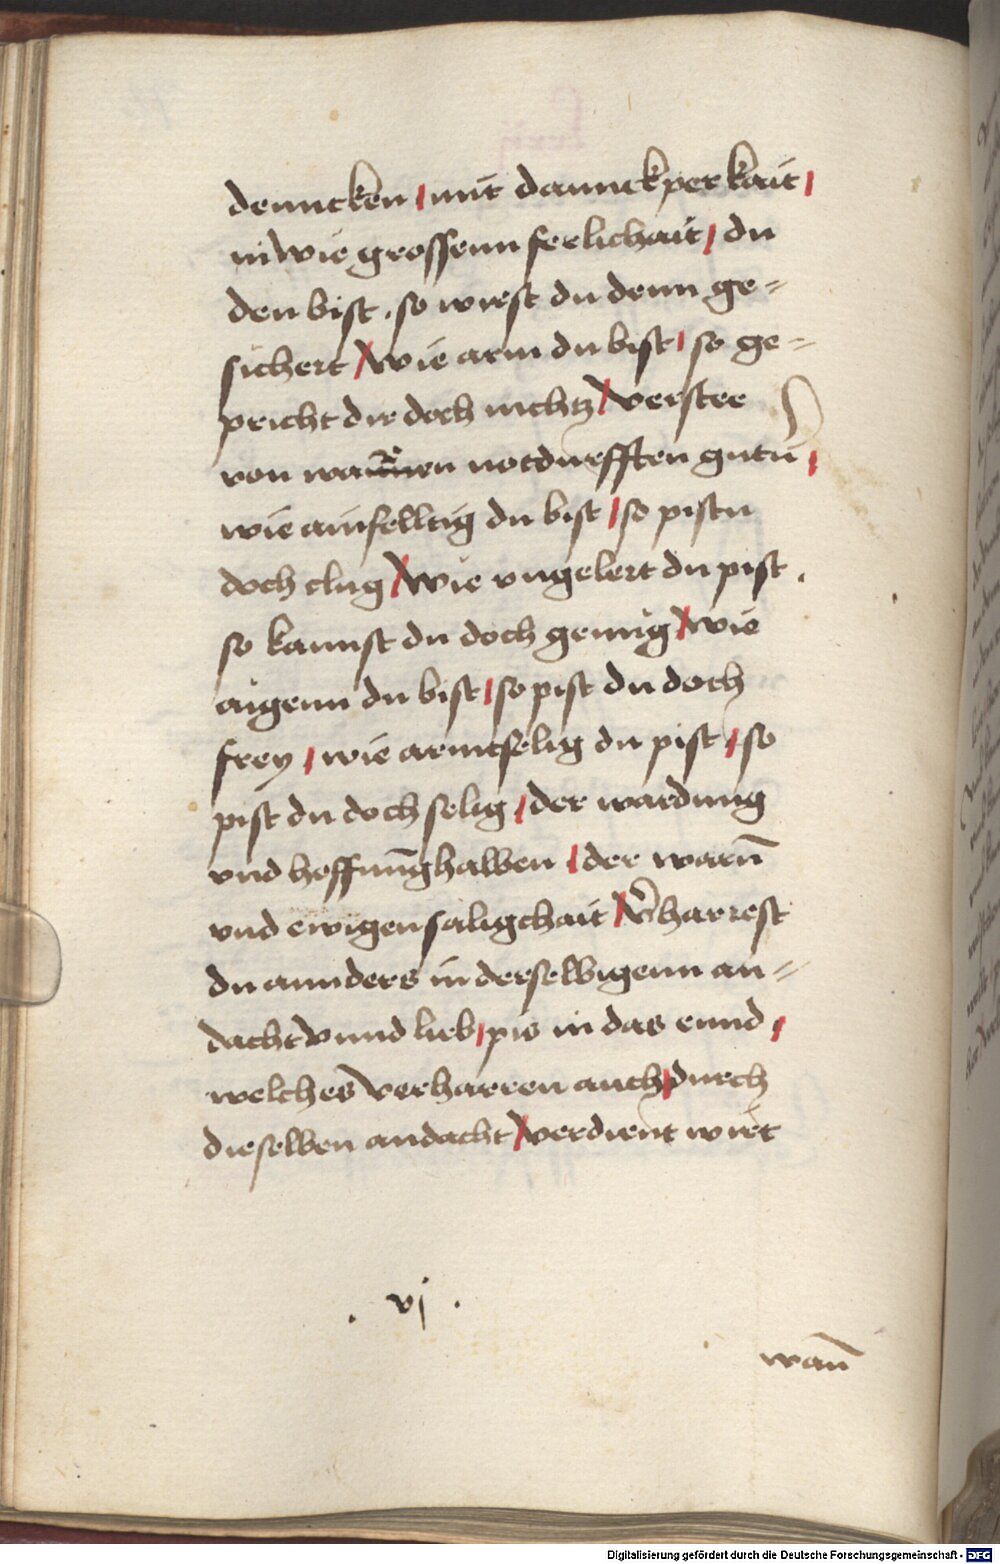 denncken / mit dannckperkait /
in wie grossenn ferlichait / du
den bist . so wirst du denn ge=
sichert / wie arm du bist / so ge=
pricht dir doch nichtz / verstee
von notdurfften gutñ /
wie ainfelltig du bist / so pistu
doch clug / wie vngelert du pist .
so kannst du doch genug / wie
aigenn du bist / so pist du doch
frey / wie armtselig du pist / so
pist du doch selig / der wardung
vnd hoffnūg halben / der warñ
vnd ewigen saligchait / v̄harrest
du annders in derselbigenn an=
dacht vnnd lieb / pis in das ennd /
welches verharren auch / durch
dieselben andacht / verdient wirt
. vj .
wañ
Digitalisierung gefördert durch die Deutsche Forschungsgemeinschaft - DFG